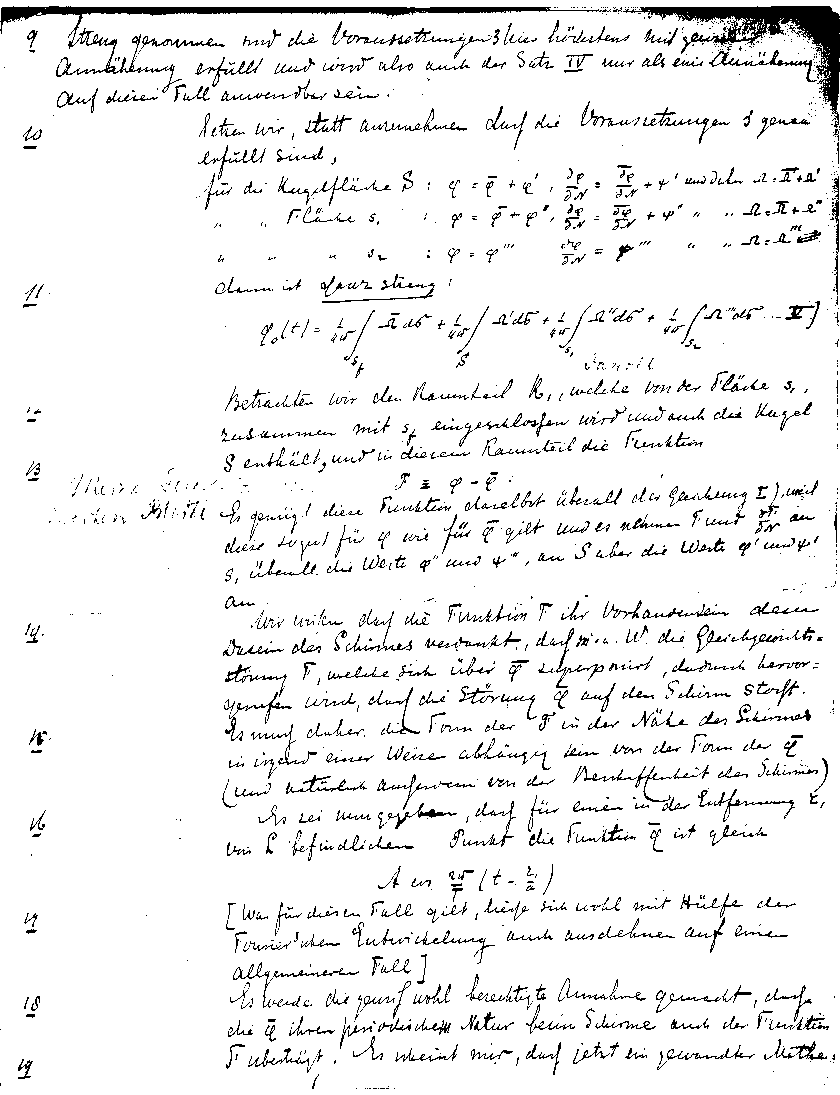 9 Streng genommen sind die Voraussetzungen 3 hier höchstens mit
Annäherung erfüllt und wird also auch der Satz IV nur als eine Annäherung
auf diesen Fall anwendbar sein.
10 Setzen wir, statt anzunehmen daß die Voraussetzungen 3 genau
erfüllt sind,
für die Kugelfläche S : φ = φ̄ + φ' , ∂φ/∂N = ∂φ̄/∂N + ψ' und daher Ω = Ω̄ + Ω'
" " Fläche s₁ : φ = φ̄ + φ'', ∂φ/∂N = ∂φ̄/∂N + ψ'' " " Ω = Ω̄ + Ω''
" " " s₂ : φ = φ''' ∂φ/∂N = ψ''' " " Ω = Ω'''
11 dann ist ganz streng:
φ₀(t) = 1/4π ∫ Ω̄ dσ + 1/4π ∫ Ω' dσ + 1/4π ∫ Ω'' dσ + 1/4π ∫ Ω''' dσ ... V]
S s₁ s₂
Betrachten wir den Raumteil R₁, welche von der Fläche s₁,
zusammen mit eingeschlossen wird und auch die Kugel
13 S enthält, und in diesem Raumteil die Funktion
F ≡ φ - φ̄ .
Es genügt diese Funktion daselbst überall der Gleichung I), weil
diese sogut für φ wie für φ̄ gilt und es nehmen F und ∂F/∂N an
s₁ überall die Werte φ'' und ψ'', an S aber die Werte φ' und ψ'
an.
14. Wir wissen daß die Funktion F ihr Vorhandensein dem
Dasein des Schirmes verdankt, daß m. a. W. die Gleichgewichts=
störung F, welche sich über φ̄ superponirt, dadurch hervor=
gerufen wird, daß die Störung φ̄ auf den Schirm stößt.
15. Es muß daher die Form der F in der Nähe des Schirmes
in irgend einer Weise abhängig sein von der Form der φ̄
(und natürlich außerdem von der Beschaffenheit des Schirmes)
16 Es sei nun gegeben, daß für einen in der Entfernung r₁
von L befindlichen Punkt die Funktion φ̄ ist gleich
A cos 2π/T (t - r₁/a)
17 [Was für diesen Fall gilt, ließe sich wohl mit Hülfe der
Fourier'schen Entwickelung auch ausdehnen auf einen
allgemeineren Fall]
18 Es werde die gewiß wohl berechtigte Annahme gemacht, daß
die φ̄ ihren periodischen Natur beim Schirme auch der Funktion
19 F überträgt. Es scheint mir, daß jetzt ein gewandter Mathe=